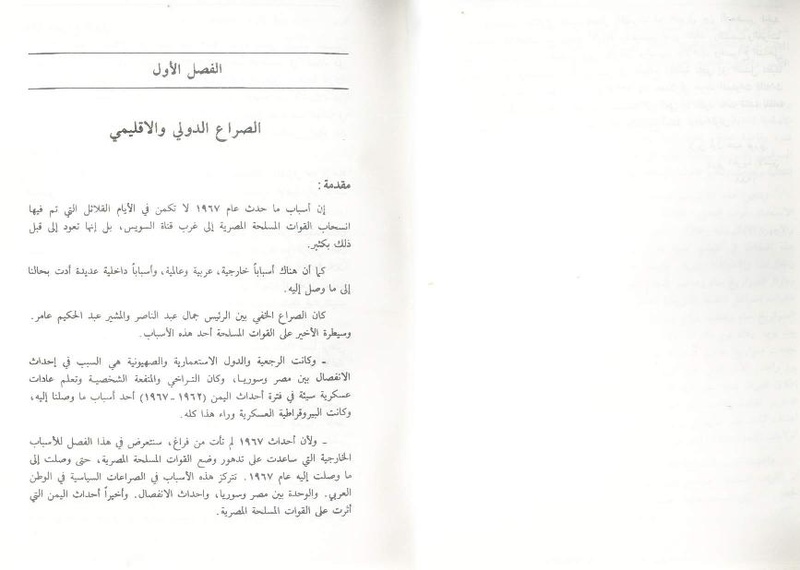 الفصل الأول
الصراع الدولي والاقليمي
مقدمة :
إن أسباب ما حدث عام ١٩٦٧ لا تكمن في الأيام القلائل التي تم فيها
انسحاب القوات المسلحة المصرية إلى غرب قناة السويس، بل إنها تعود إلى قبل
ذلك بكثير.
كما أن هناك أسباباً خارجية، عربية وعالمية، وأسباباً داخلية عديدة أدت بحالنا
إلى ما وصل إليه.
كان الصراع الخفي بين الرئيس جمال عبد الناصر والمشير عبد الحكيم عامر.
وسيطرة الأخير على القوات المسلحة أحد هذه الأسباب.
ـ وكانت الرجعية والدول الاستعمارية والصهيونية هي السبب في إحداث
الانفصال بين مصر وسوريا، وكان التراخي والمنفعة الشخصية وتعلم عادات
عسكرية سيئة في فترة أحداث اليمن (١٩٦٢ ـ ١٩٦٧) أحد أسباب ما وصلنا إليه،
وكانت البيروقراطية العسكرية وراء هذا كله.
ـ ولأن أحداث ١٩٦٧ لم تأت من فراغ، سنتعرض في هذا الفصل للأسباب
الخارجية التي ساعدت على تدهور وضع القوات المسلحة المصرية، حتى وصلت إلى
ما وصلت إليه عام ١٩٦٧. تتركز هذه الأسباب في الصراعات السياسية في الوطن
العربي. والوحدة بين مصر وسوريا، واحداث الانفصال. وأخيراً أحداث اليمن التي
أثرت على القوات المسلحة المصرية.